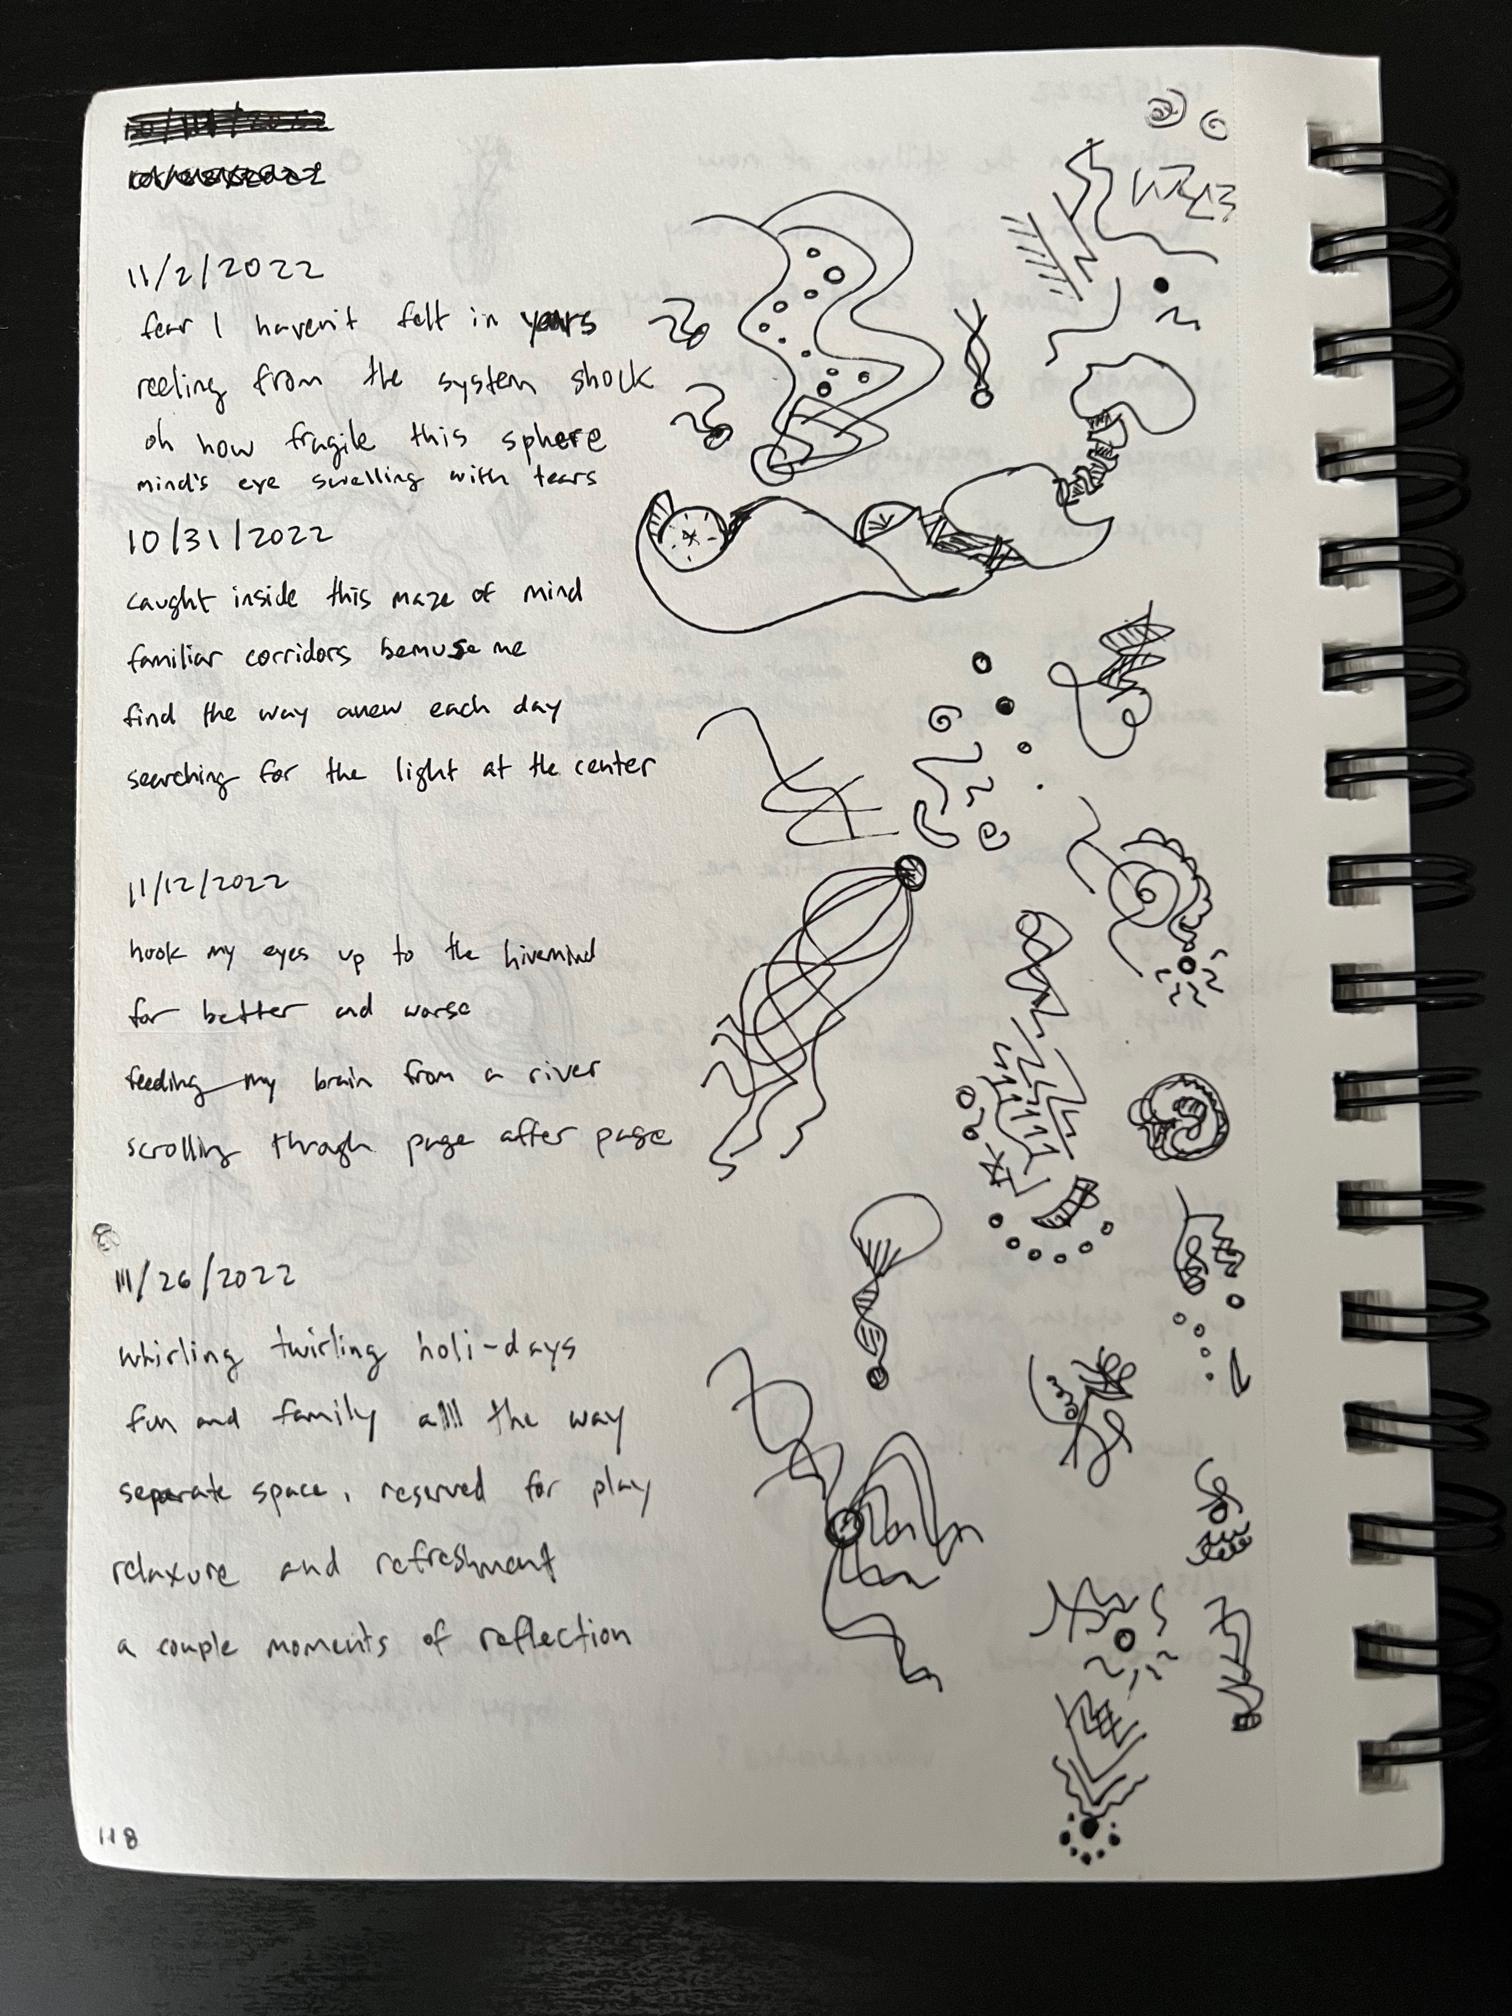 11/2/2022
fear I haven't felt in years
reeling from the system shock
oh how fragile this sphere
mind's eye swelling with tears
10/31/2022
caught inside this maze of mind
familiar corridors bemuse me
find the way anew each day
searching for the light at the center
11/12/2022
hook my eyes up to the hivemind
for better and worse
feeding my brain from a river
scrolling through page after page
11/26/2022
whirling twirling holi-days
fun and family all the way
separate space, reserved for play
relaxure and refreshment
a couple moments of reflection
118